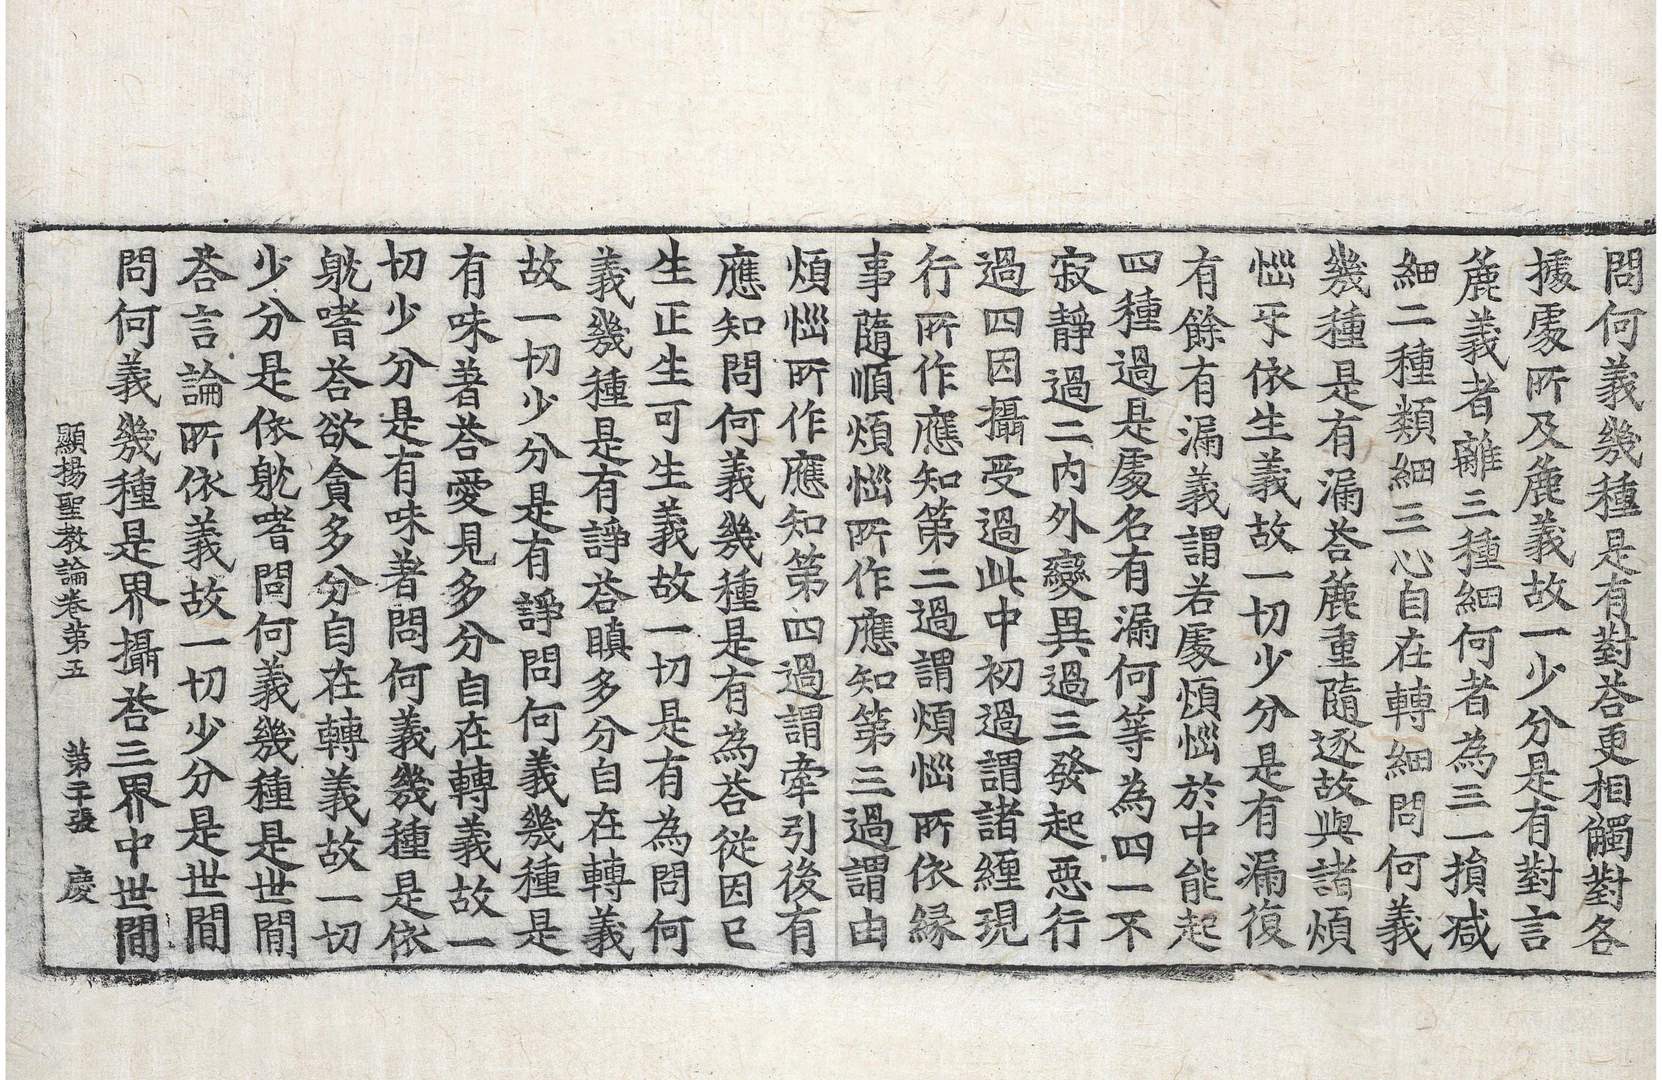 問何義幾種是有對荅更相觸對各
據處所及麁義故一少分是有對言
麁義者離三種細何者為三一損減
細二種類細三心自在轉細問何義
幾種是有漏荅麁重隨逐故與諸煩
惱㸦依生義故一切少分是有漏復
有餘有漏義謂若處煩惱於中能起
四種過是處名有漏何等為四一不
寂靜過二內外變異過三發起惡行
過四因攝受過此中初過謂諸纏現
行所作應知第二過謂煩惱所依緣
事隨順煩惱所作應知第三過謂由
煩惱所作應知第四過謂牽引後有
應知問何義幾種是有為荅從因已
生正生可生義故一切是有為問何
義幾種是有諍荅瞋多分自在轉義
故一切少分是有諍問何義幾種是
有味著荅愛見多分自在轉義故一
切少分是有味著問何義幾種是依
躭嗜荅欲貪多分自在轉義故一切
少分是依躭嗜問何義幾種是世間
荅言論所依義故一切少分是世間
問何義幾種是界攝荅三界中世間
顯揚聖教論卷第五 第十張 慶